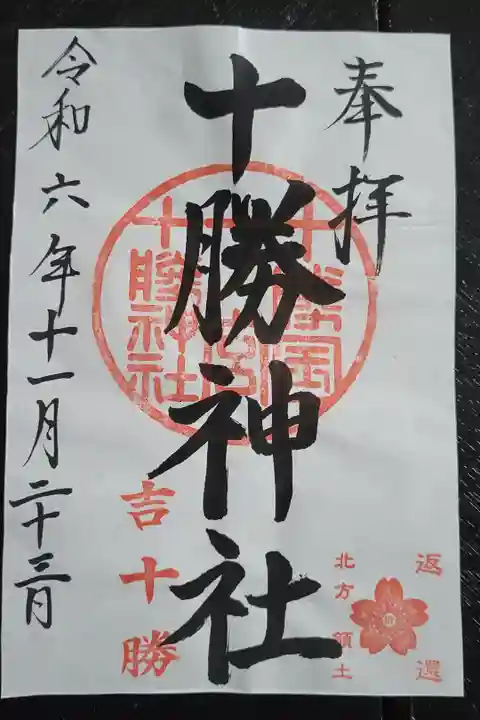 奉拝
十勝神社
十勝国
十勝神社
吉十勝
北方領土
返還
令和六年十一月二十三日